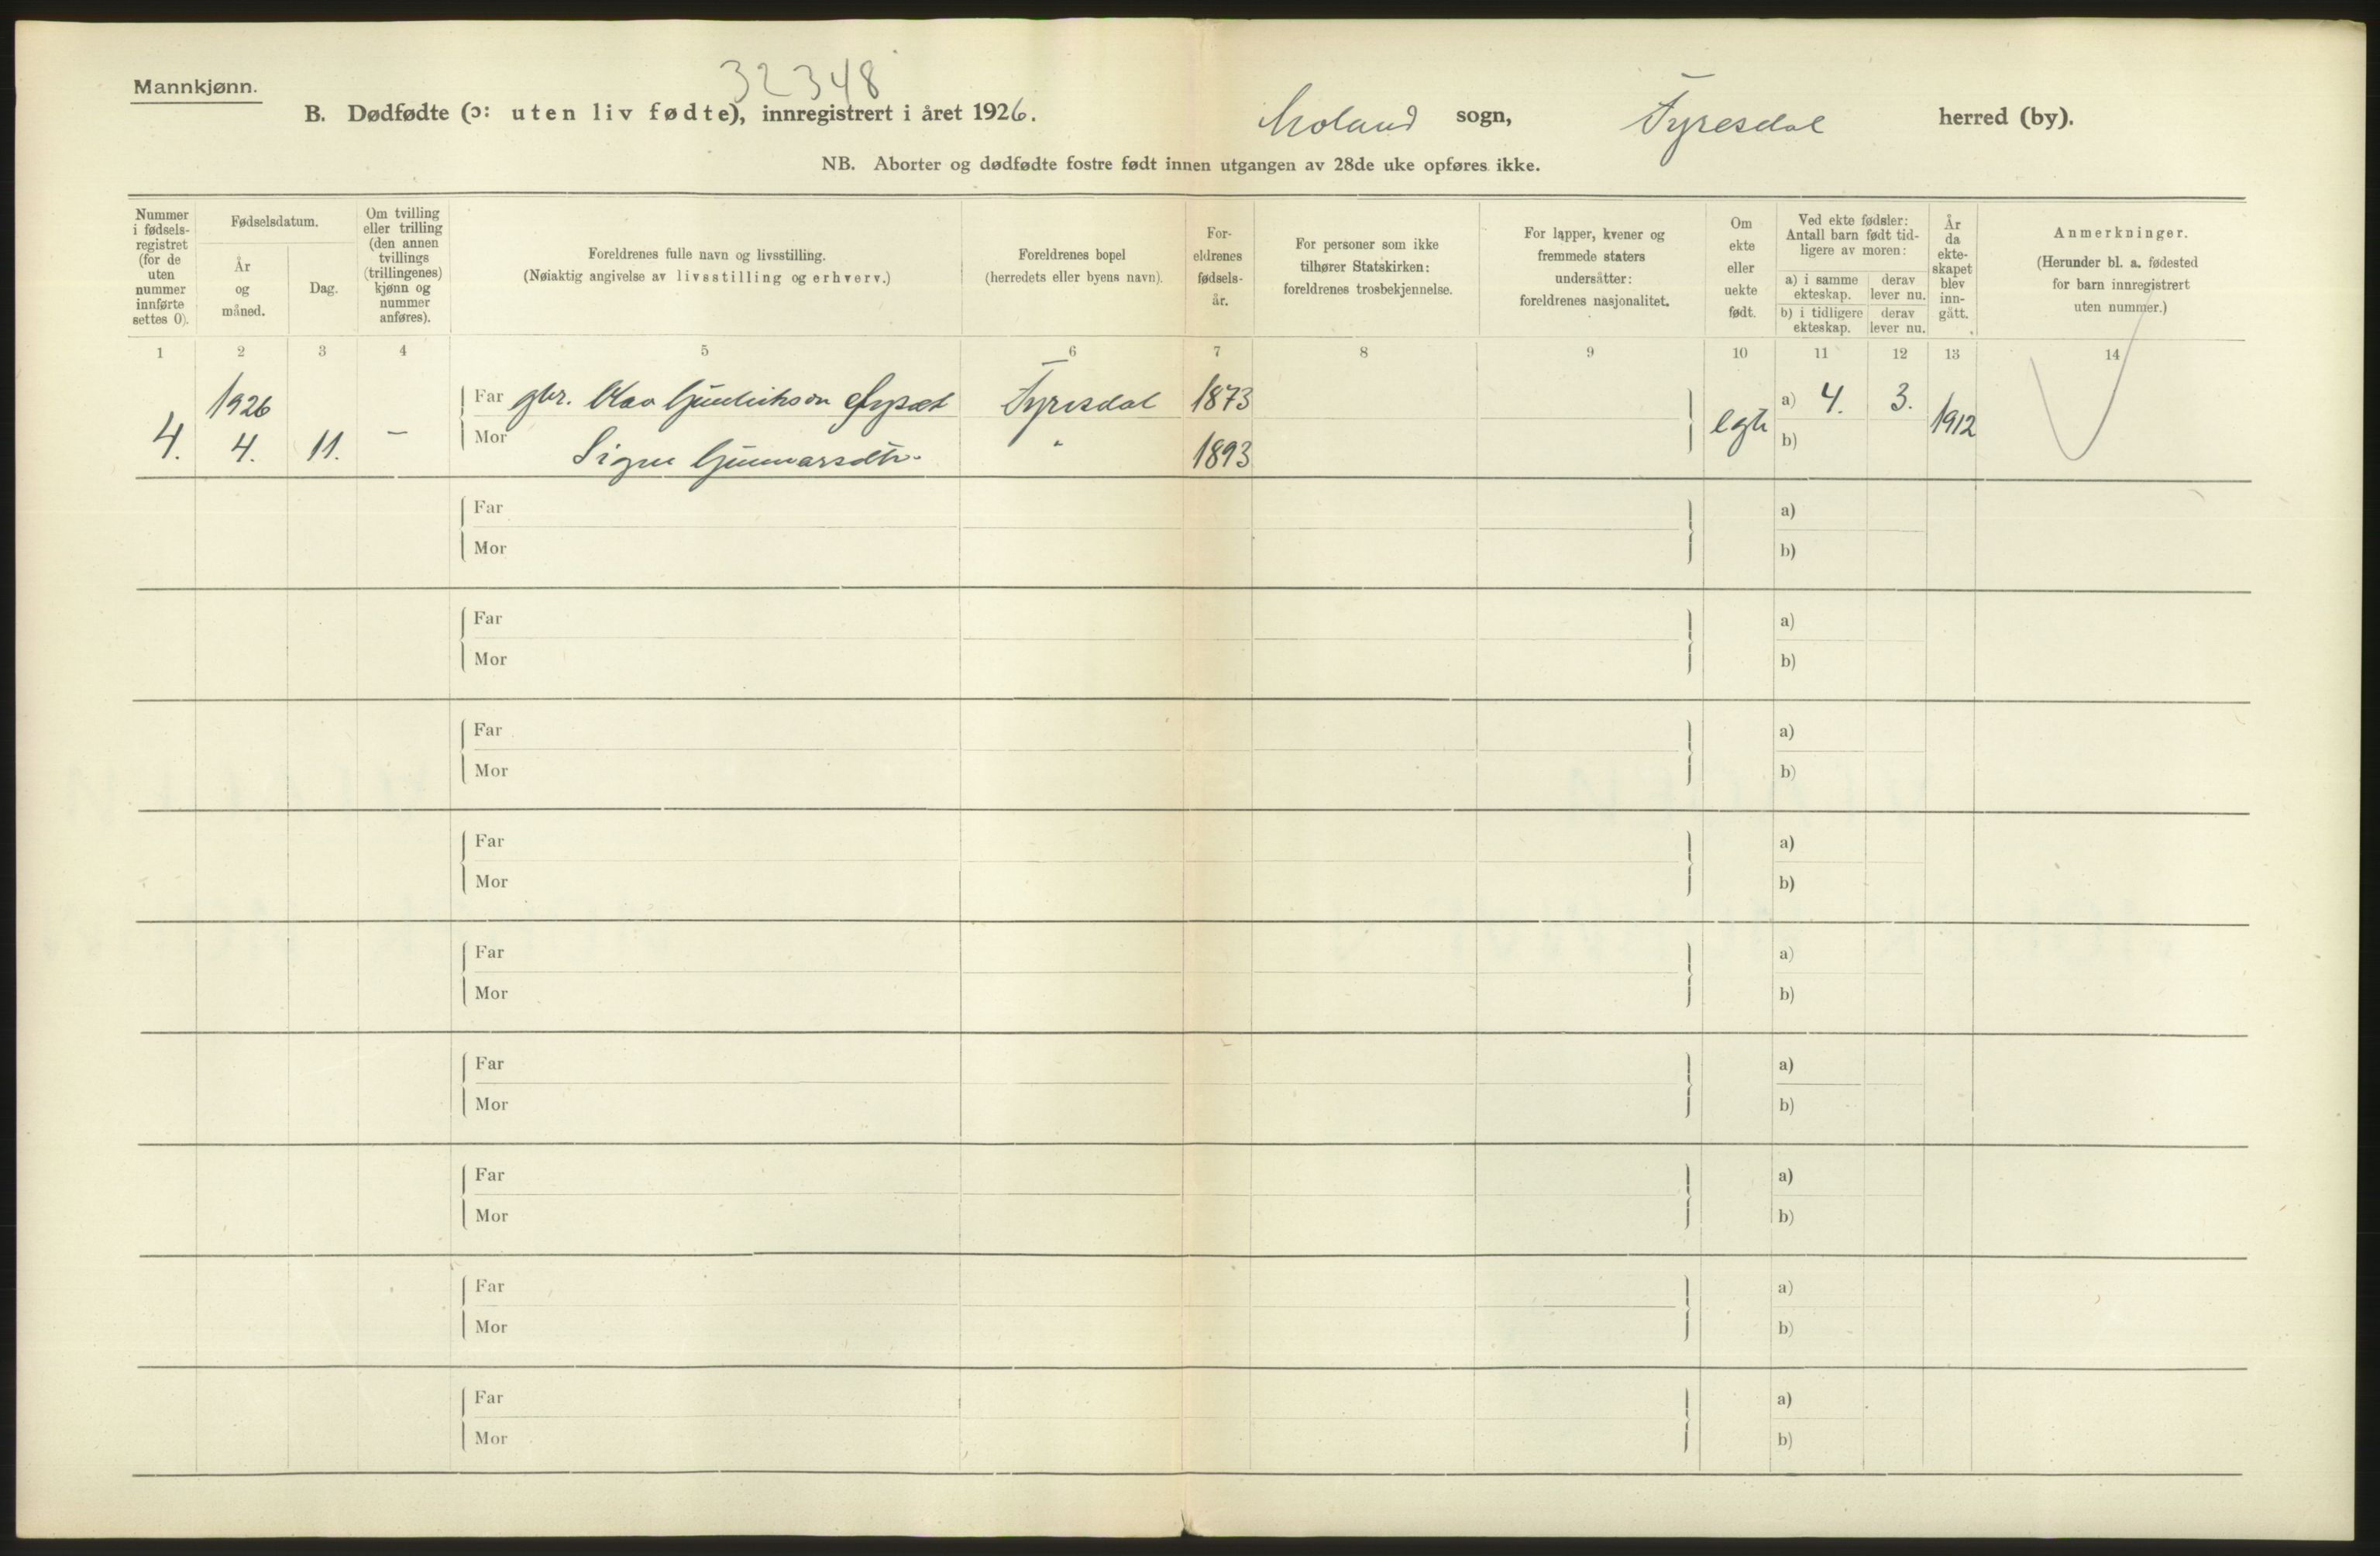 32348
Mannkjønn.
B. Dødfødte (ɔ: uten liv fødte), innregistrert i året 1926. Moland sogn, Fyresdal herred (by).
NB. Aborter og dødfødte fostre født innen utgangen av 28de uke opføres ikke.
Nummer i fødsels-registret (for de uten nummer innførte settes 0).
Fødselsdatum.
År og måned.
Dag.
Om tvilling eller trilling (den annen tvillings (trillingenes) kjønn og nummer anføres).
Foreldrenes fulle navn og livsstilling.
(Nøiaktig angivelse av livsstilling og erhverv.)
Foreldrenes bopel
(herredets eller byens navn).
For-eldrenes fødsels-år.
For personer som ikke tilhører Statskirken: foreldrenes trosbekjennelse.
For lapper, kvener og fremmede staters undersåtter: foreldrenes nasjonalitet.
Om ekte eller uekte født.
Ved ekte fødsler: Antall barn født tid-ligere av moren:
a) i samme ekteskap. derav lever nu.
b) i tidligere ekteskap. derav lever nu.
År da ekte-skapet blev inn-gått.
Anmerkninger.
(Herunder bl. a. fødested for barn innregistrert uten nummer.)
1 2 3 4 5 6 7 8 9 10 11 12 13 14
1926 Far gbr. Fyresdal 1873 a) 4. 3.
4. 4. 11. – Mor Signe Gunnarsdtr. " 1893 egte b) 1912
Far a)
Mor b)
Far a)
Mor b)
Far a)
Mor b)
Far a)
Mor b)
Far a)
Mor b)
Far a)
Mor b)
Far a)
Mor b)
Far a)
Mor b)
Far a)
Mor b)